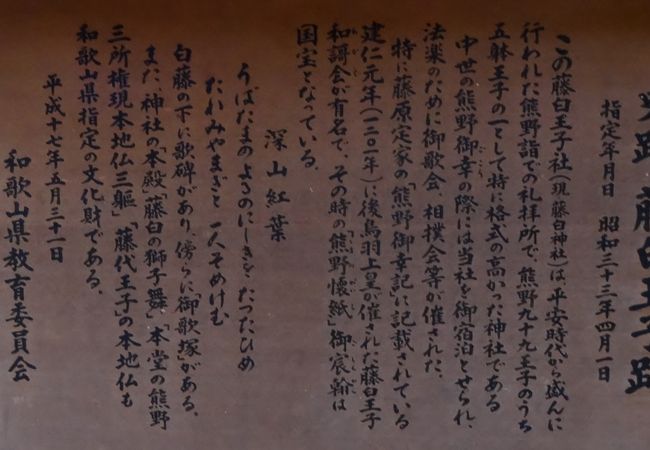 史跡 藤白王子跡
指定年月日 昭和三十三年四月一日
この藤白王子社(現藤白神社)は、平安時代から盛んに
行われた熊野詣での礼拝所で、熊野九十九王子のうち
五躰王子の一として特に格式の高かった神社である
中世の熊野御幸の際には当社を御宿泊とせられ、
法楽のために御歌会、相撲会等が催された。
特に藤原定家の「熊野御幸記」に記載されている
建仁元年(一二〇一年)に後鳥羽上皇が催された藤白王子
和謌会が有名で、その時の「熊野懐紙」御宸翰は
国宝となっている。
深山紅葉
うばたまのよるのにしきをたつたひめ
たれみやまぎと一人そめけむ
白藤の下に歌碑があり、傍らに御歌塚がある。
また、神社の「本殿」「藤白の獅子舞」「本堂の熊野
三所権現本地仏三躯」「藤代王子の本地仏も
和歌山県指定の文化財である。
平成十七年五月三十一日
和歌山県教育委員会